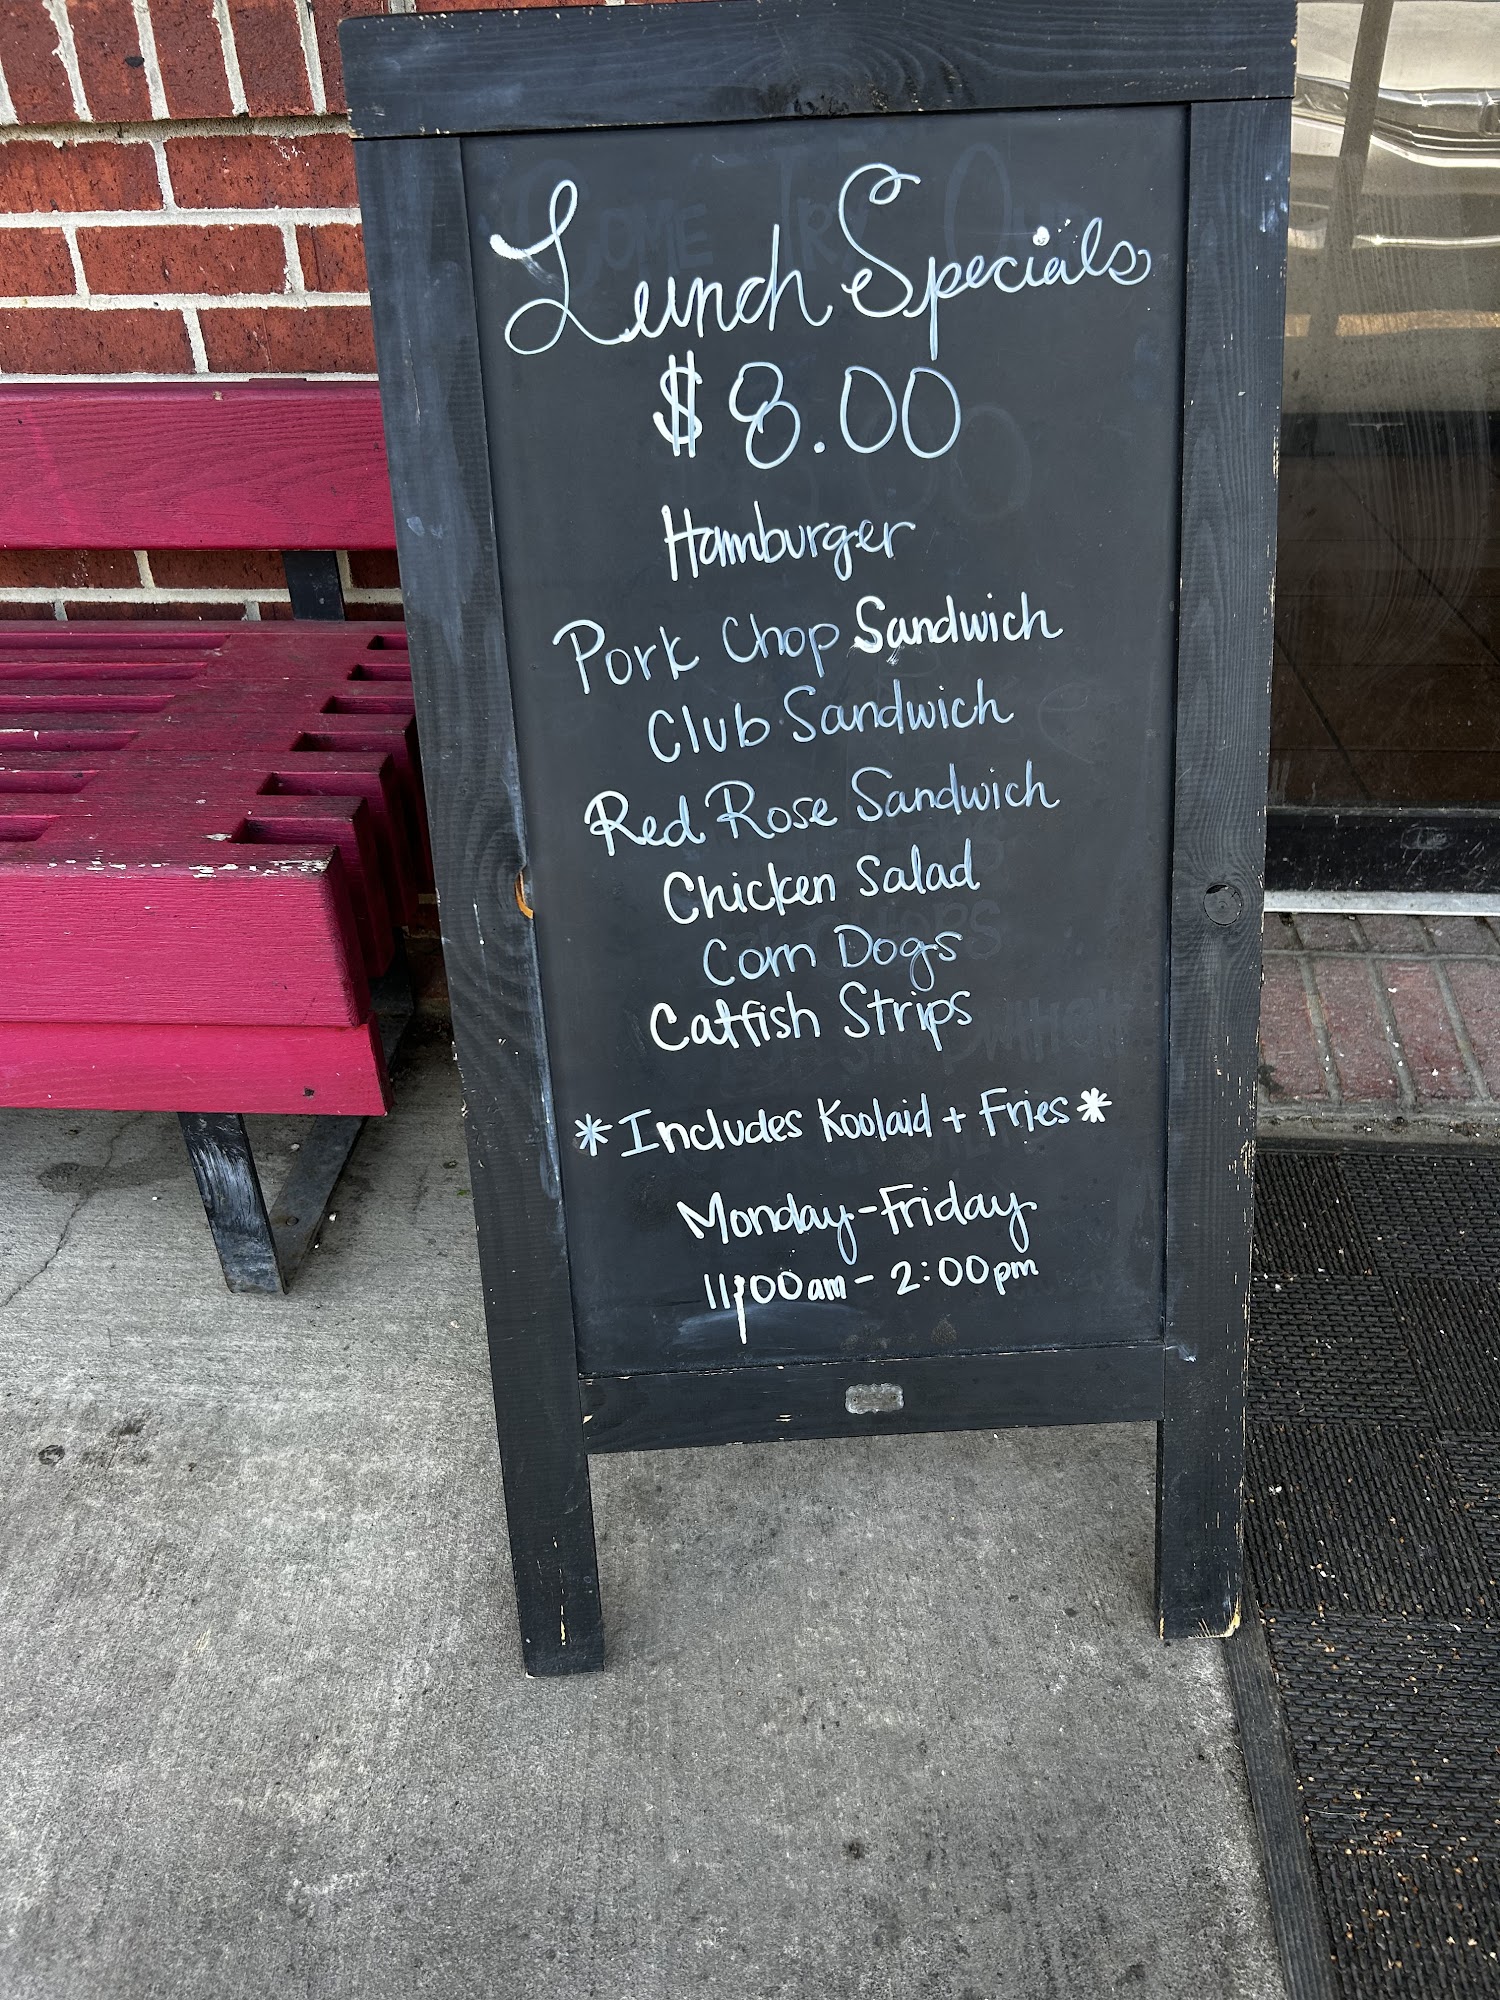 Lunch Specials
$8.00
Hamburger
Pork Chop Sandwich
Club Sandwich
Red Rose Sandwich
Chicken Salad
Corn Dogs
Catfish Strips
*Includes Koolaid + Fries*
Monday-Friday
11:00am - 2:00pm